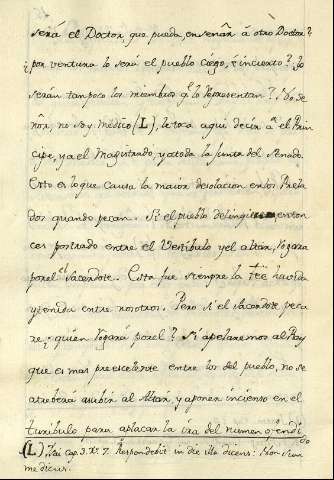 será el Doctor, que pueda enseñar á otro Doctor?
¿por ventura lo será el pueblo ciego, é incierto? ¿lo
serán tampoco los miembros q.e lo representan? No, Se-
ñor, no soy médico (L), le toca aqui decir al Prin-
cipe, ya el Magistrado, ya toda la Junta del Senado.
Esto es lo que causa la maior desolacion en los Prela-
dos quando pecan. Si el pueblo delinquiese enton
ces postrado entre el Vestibulo y el altar, rogara
por el el Sacerdote. Esta fue siempre la fée havida
y tenida entre nosotros. Pero si el Sacerdote peca
re ¿quien rogará por el? Si apelaremos al Rey
que es mas preexcelente entre los del pueblo, no se
atreberá á subir al Altar, y a poner incienso en el
turibulo para aplacar la ira del numen ofendido
(L) Isai cap. 3. V. 7. Respondebit in die illa dicens: Non sum
medicus.